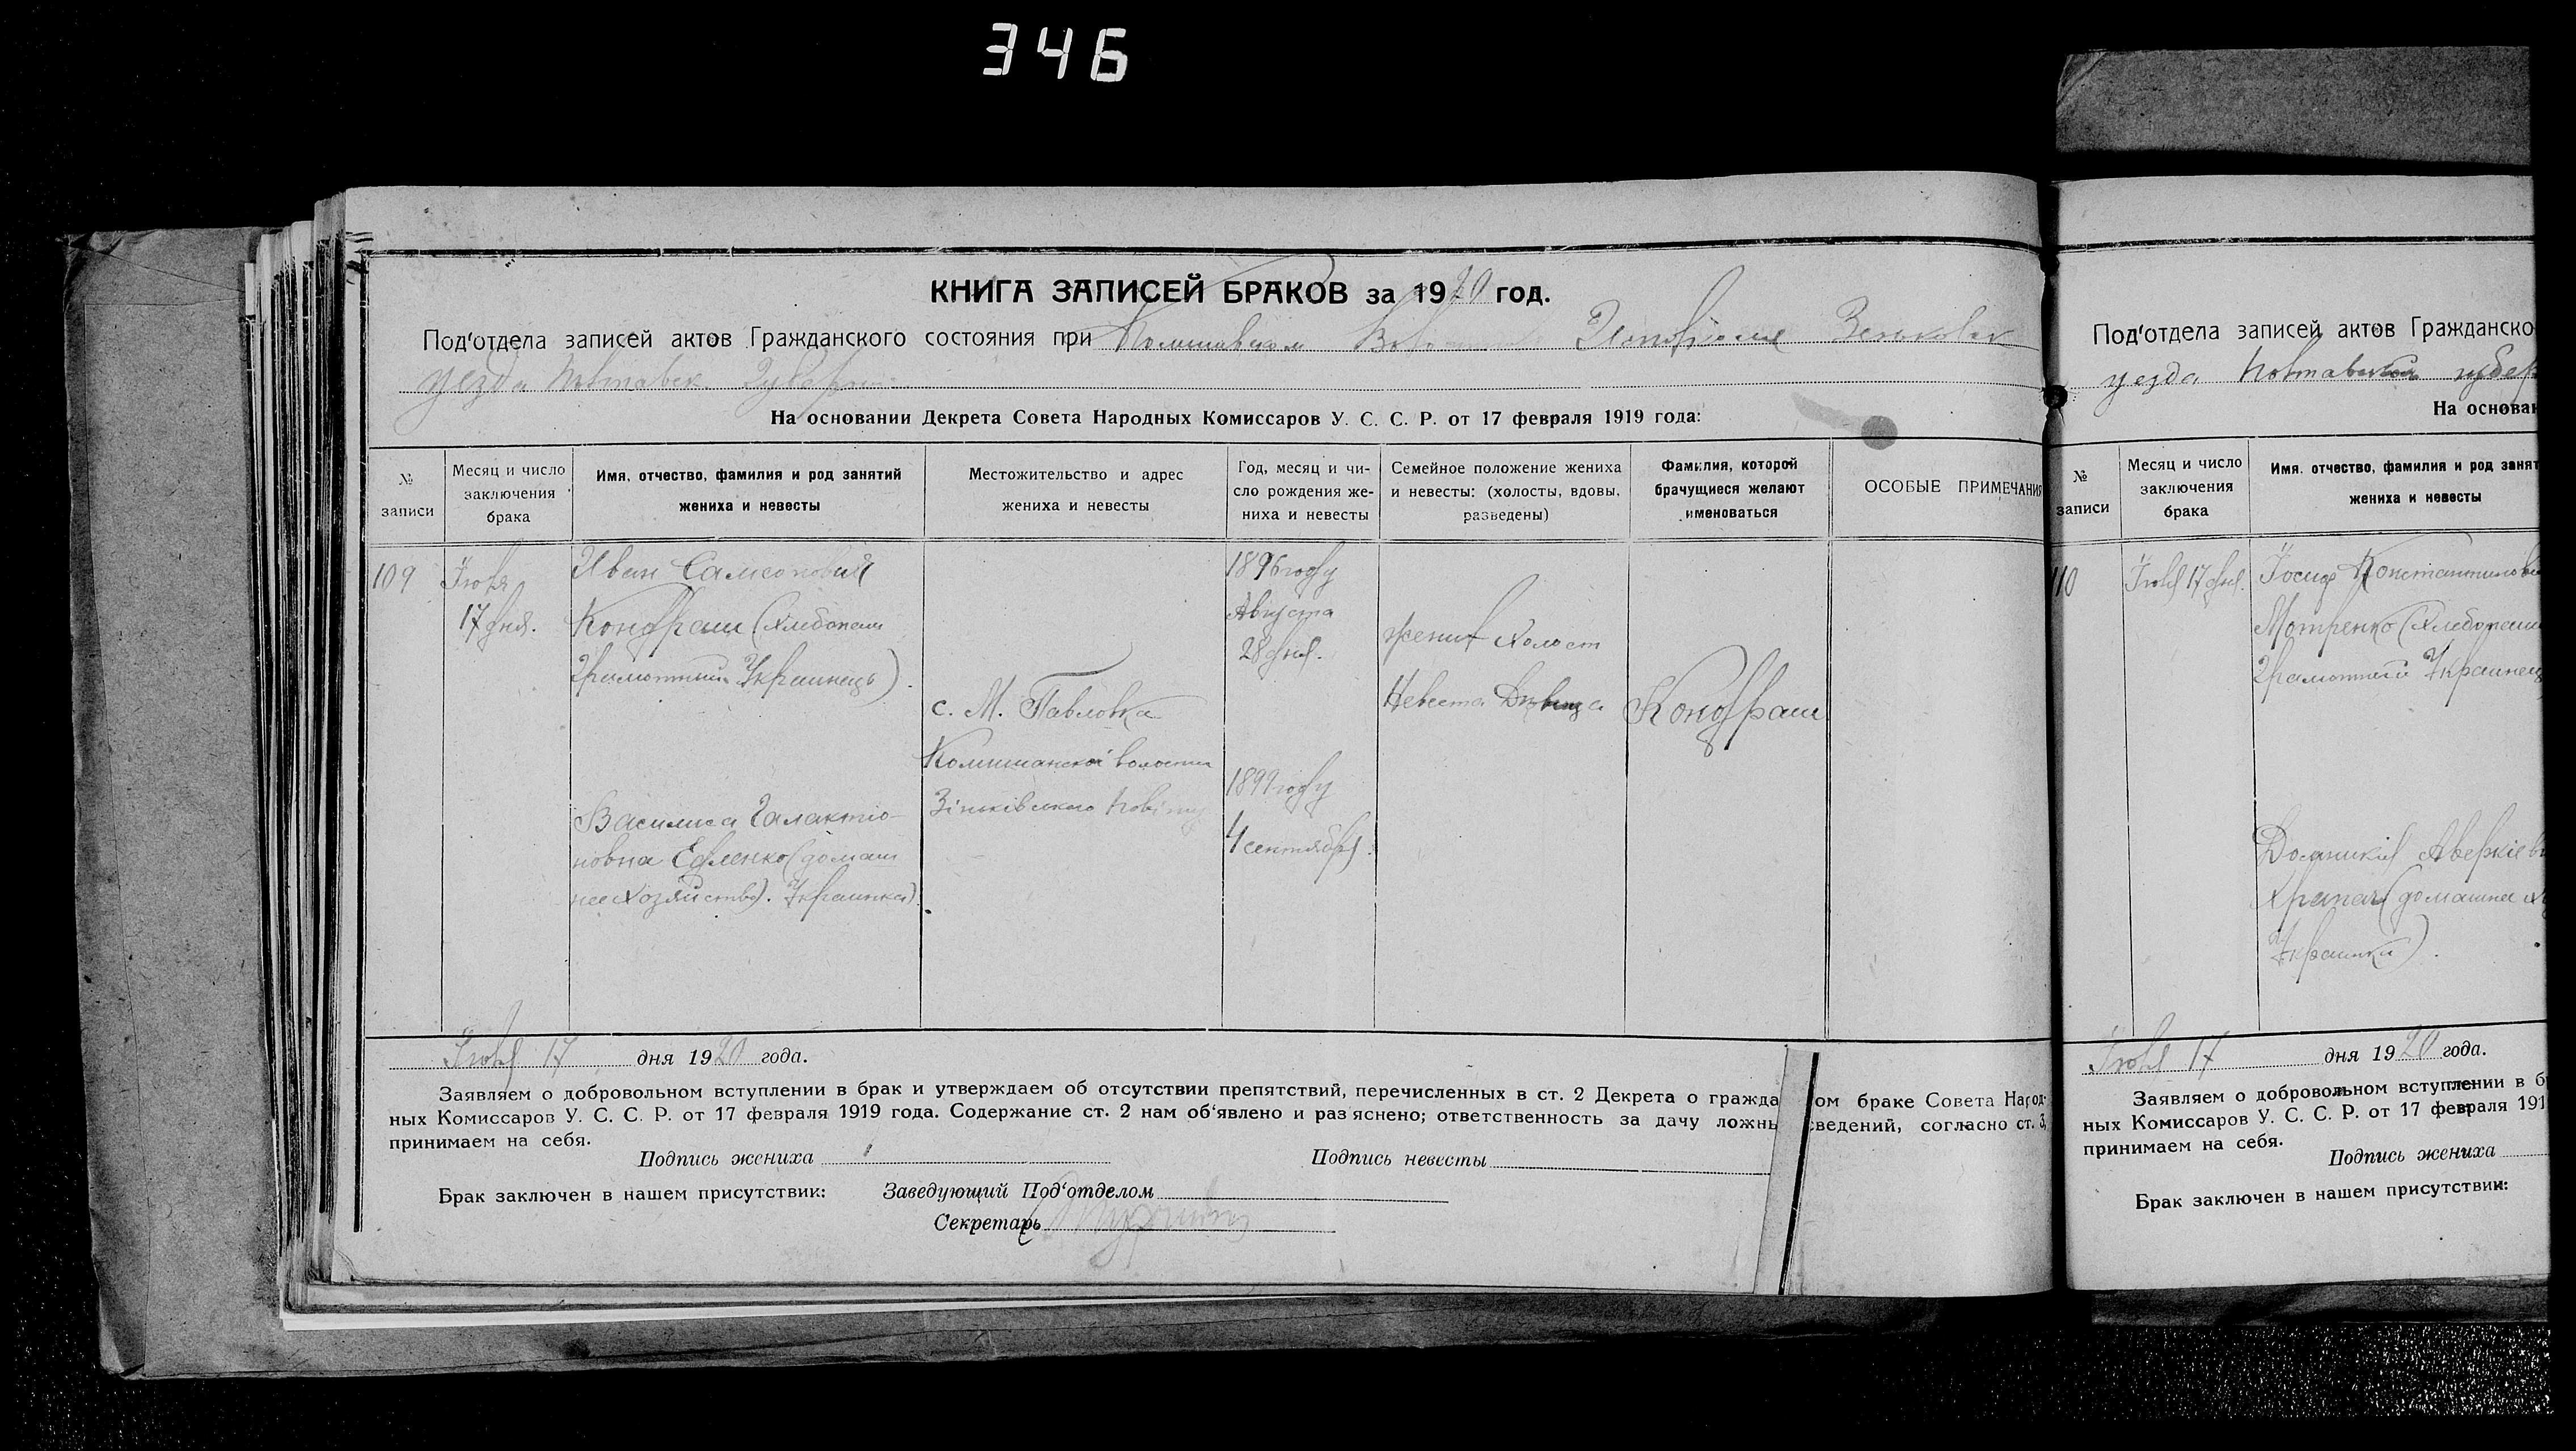 346
КНИГА ЗАПИСЕЙ БРАКОВ за 1920 год.
Под'отдела записей актов Гражданского состояния при Исполкоме Зеньковск
уезда Полтавск. Губерн
На основании Декрета Совета Народных Комиссаров У. С. С. Р. от 17 февраля 1919 года:
№ записи
Месяц и число заключения брака
Имя, отчество, фамилия и род занятий жениха и невесты
Местожительство и адрес жениха и невесты
Год, месяц и чи-
сло рождения же-
ниха и невесты
Семейное положение жениха
и невесты: (холосты, вдовы,
разведены)
Фамилия, которой
брачущиеся желают
именоваться
ОСОБЫЕ ПРИМЕЧАНИЯ
109
Іюля
17 дня.
Иван Самсонович
Кондраш (хлебопаш
грамотный Українець).
Василиса Галактіо-
новна Едленко (домаш
нее хозяйство). Украинка)
с. М. Павловка
Комишанскої волости
Зіньківського повіту
1896 году
Августа
28 дня.
1899 году
4 сентября.
жених холост
Невеста Дивица
Кондраш
Іюля 17 дня 1920 года.
Заявляем о добровольном вступлении в брак и утверждаем об отсутствии препятствий, перечисленных в ст. 2 Декрета о гражда ом браке Совета Народ-
ных Комиссаров У. С. С. Р. от 17 февраля 1919 года. Содержание ст. 2 нам об'явлено и раз'яснено; ответственность за дачу ложны сведений, согласно ст. 3,
принимаем на себя.
Подпись жениха
Подпись невесты
Брак заключен в нашем присутствии: Заведующий Под'отделом
Секретарь
Под'отдела записей актов Гражданско
уезда Полтавской губер
На основан
№ записи
Месяц и число
заключения
брака
Имя, отчество, фамилия и род занят
жениха и невесты
110
Іюля 17 дня.
Іосиф Константинови
Мотренко (хлебопаш
грамотний Українец
Аверкіев
Храпач (домашнее х
Украинка).
Іюля 17 дня 1920 года.
Заявляем о добровольном вступлении в б
ных Комиссаров У. С. С. Р. от 17 февраля 191
принимаем на себя.
Подпись жениха
Брак заключен в нашем присутствии: